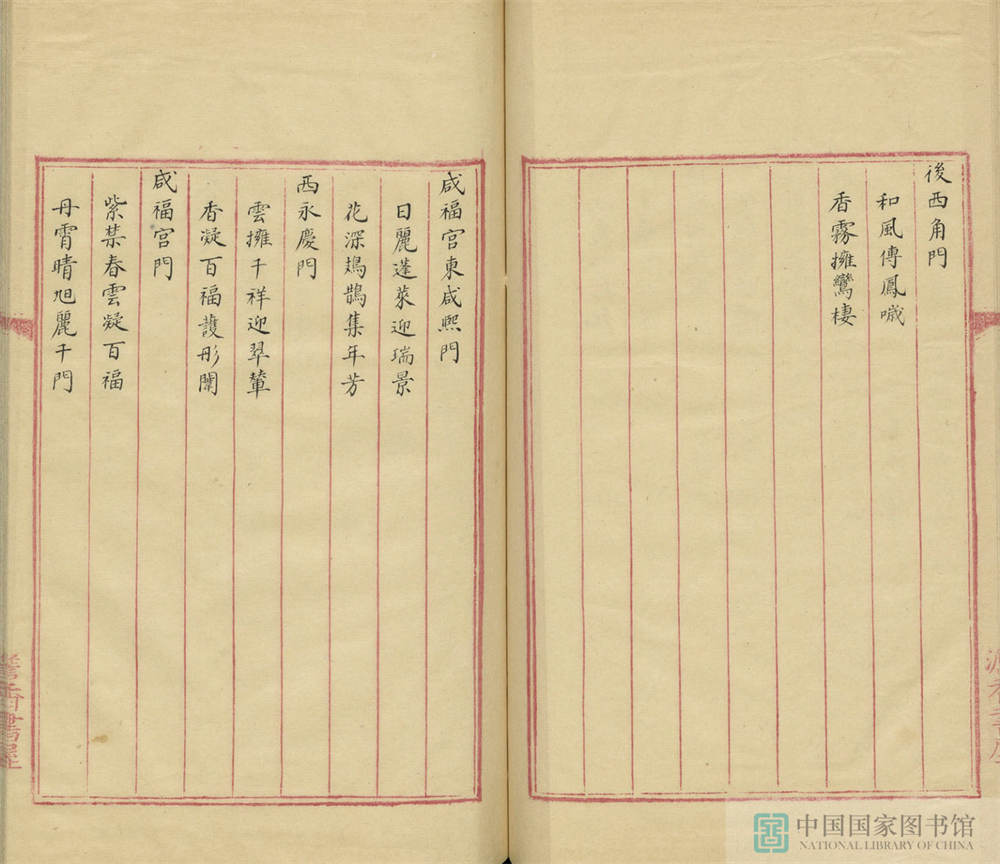 後西角門
和風傳鳳噦
香霧擁鸞棲
咸福宮東咸熙門
日麗蓬萊迎瑞景
花深鳷鵲集年芳
西永慶門
雲擁千祥迎翠輦
香凝百福護彤闈
咸福宮門
紫禁春雲凝百福
丹霄晴旭麗千門
香書屋
中国国家图书馆
NATIONAL LIBRARY OF CHINA